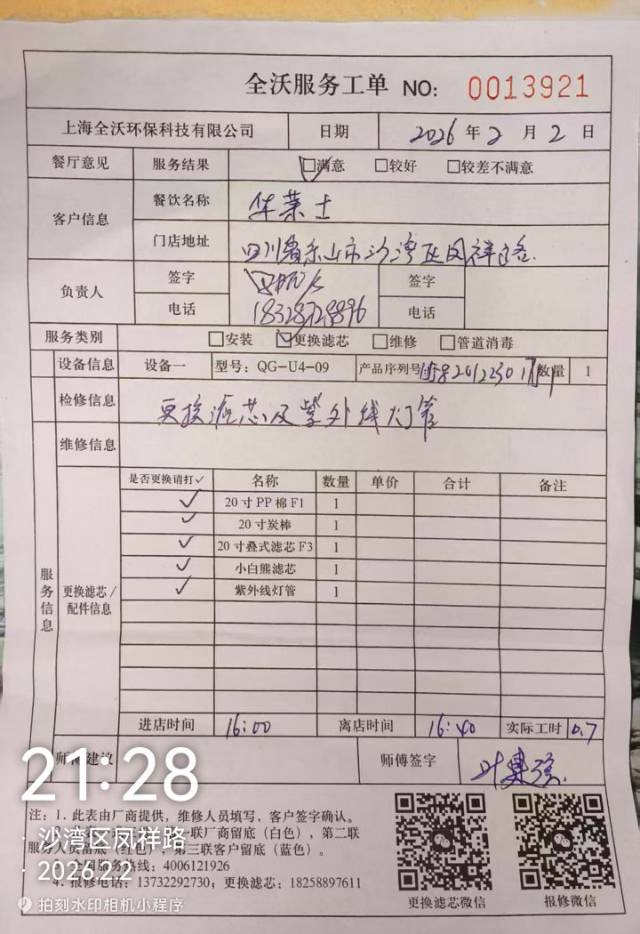 全沃服务工单 NO: 0013921
上海全沃环保科技有限公司 日期 2026年2月2日
餐厅意见 服务结果 ☑满意 □较好 □较差不满意
客户信息 餐饮名称 华莱士
门店地址 四川省乐山市沙湾区凤祥路
负责人 签字 签字
电话 18328728896 电话
服务类别 □安装 ☑更换滤芯 □维修 □管道消毒
设备信息 设备一 型号: QG-U4-09 产品序列号 数量 1
检修信息 更换滤芯及紫外线灯管
维修信息
服务信息
更换滤芯/配件信息
是否更换请打✓ 名称 数量 单价 合计 备注
✓ 20寸PP棉F1 1
✓ 20寸炭棒 1
✓ 20寸叠式滤芯F3 1
✓ 小白熊滤芯 1
✓ 紫外线灯管 1
进店时间 16:00 离店时间 16:40 实际工时 0.7
师傅建议 师傅签字
21:28
注: 1. 此表由厂商提供, 维修人员填写, 客户签字确认。
一联厂商留底(白色), 第二联
服务人员留底(红色), 第三联客户留底(蓝色)。
服务热线: 4006121926
4. 报修电话: 13732292730; 更换滤芯: 18258897611
· 沙湾区凤祥路
· 2026.2.2
拍刻水印相机小程序
更换滤芯微信 报修微信